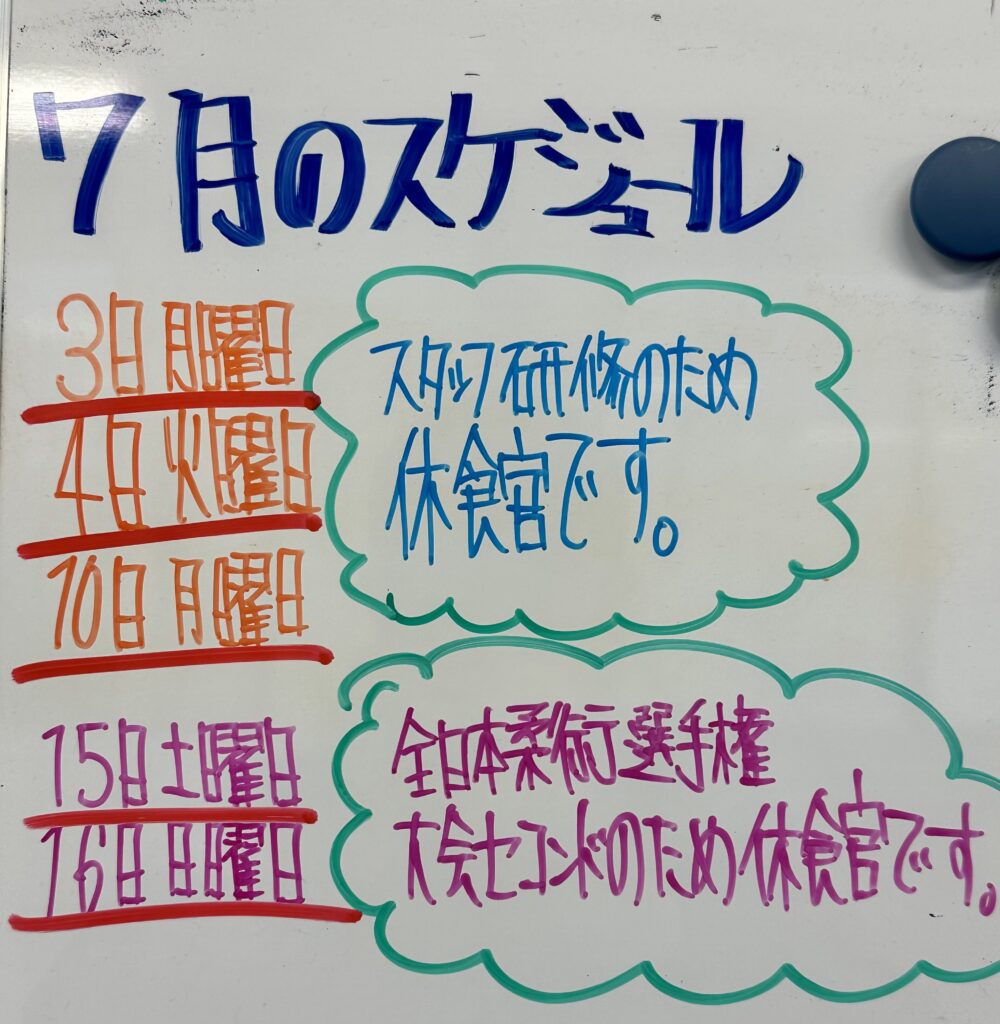 7月のスケジュール
3日 月曜日
4日 火曜日
10日 月曜日
スタッフ研修のため
休館です。
15日 土曜日
16日 日曜日
全日本柔術選手権
大会セコンドのため休館です。